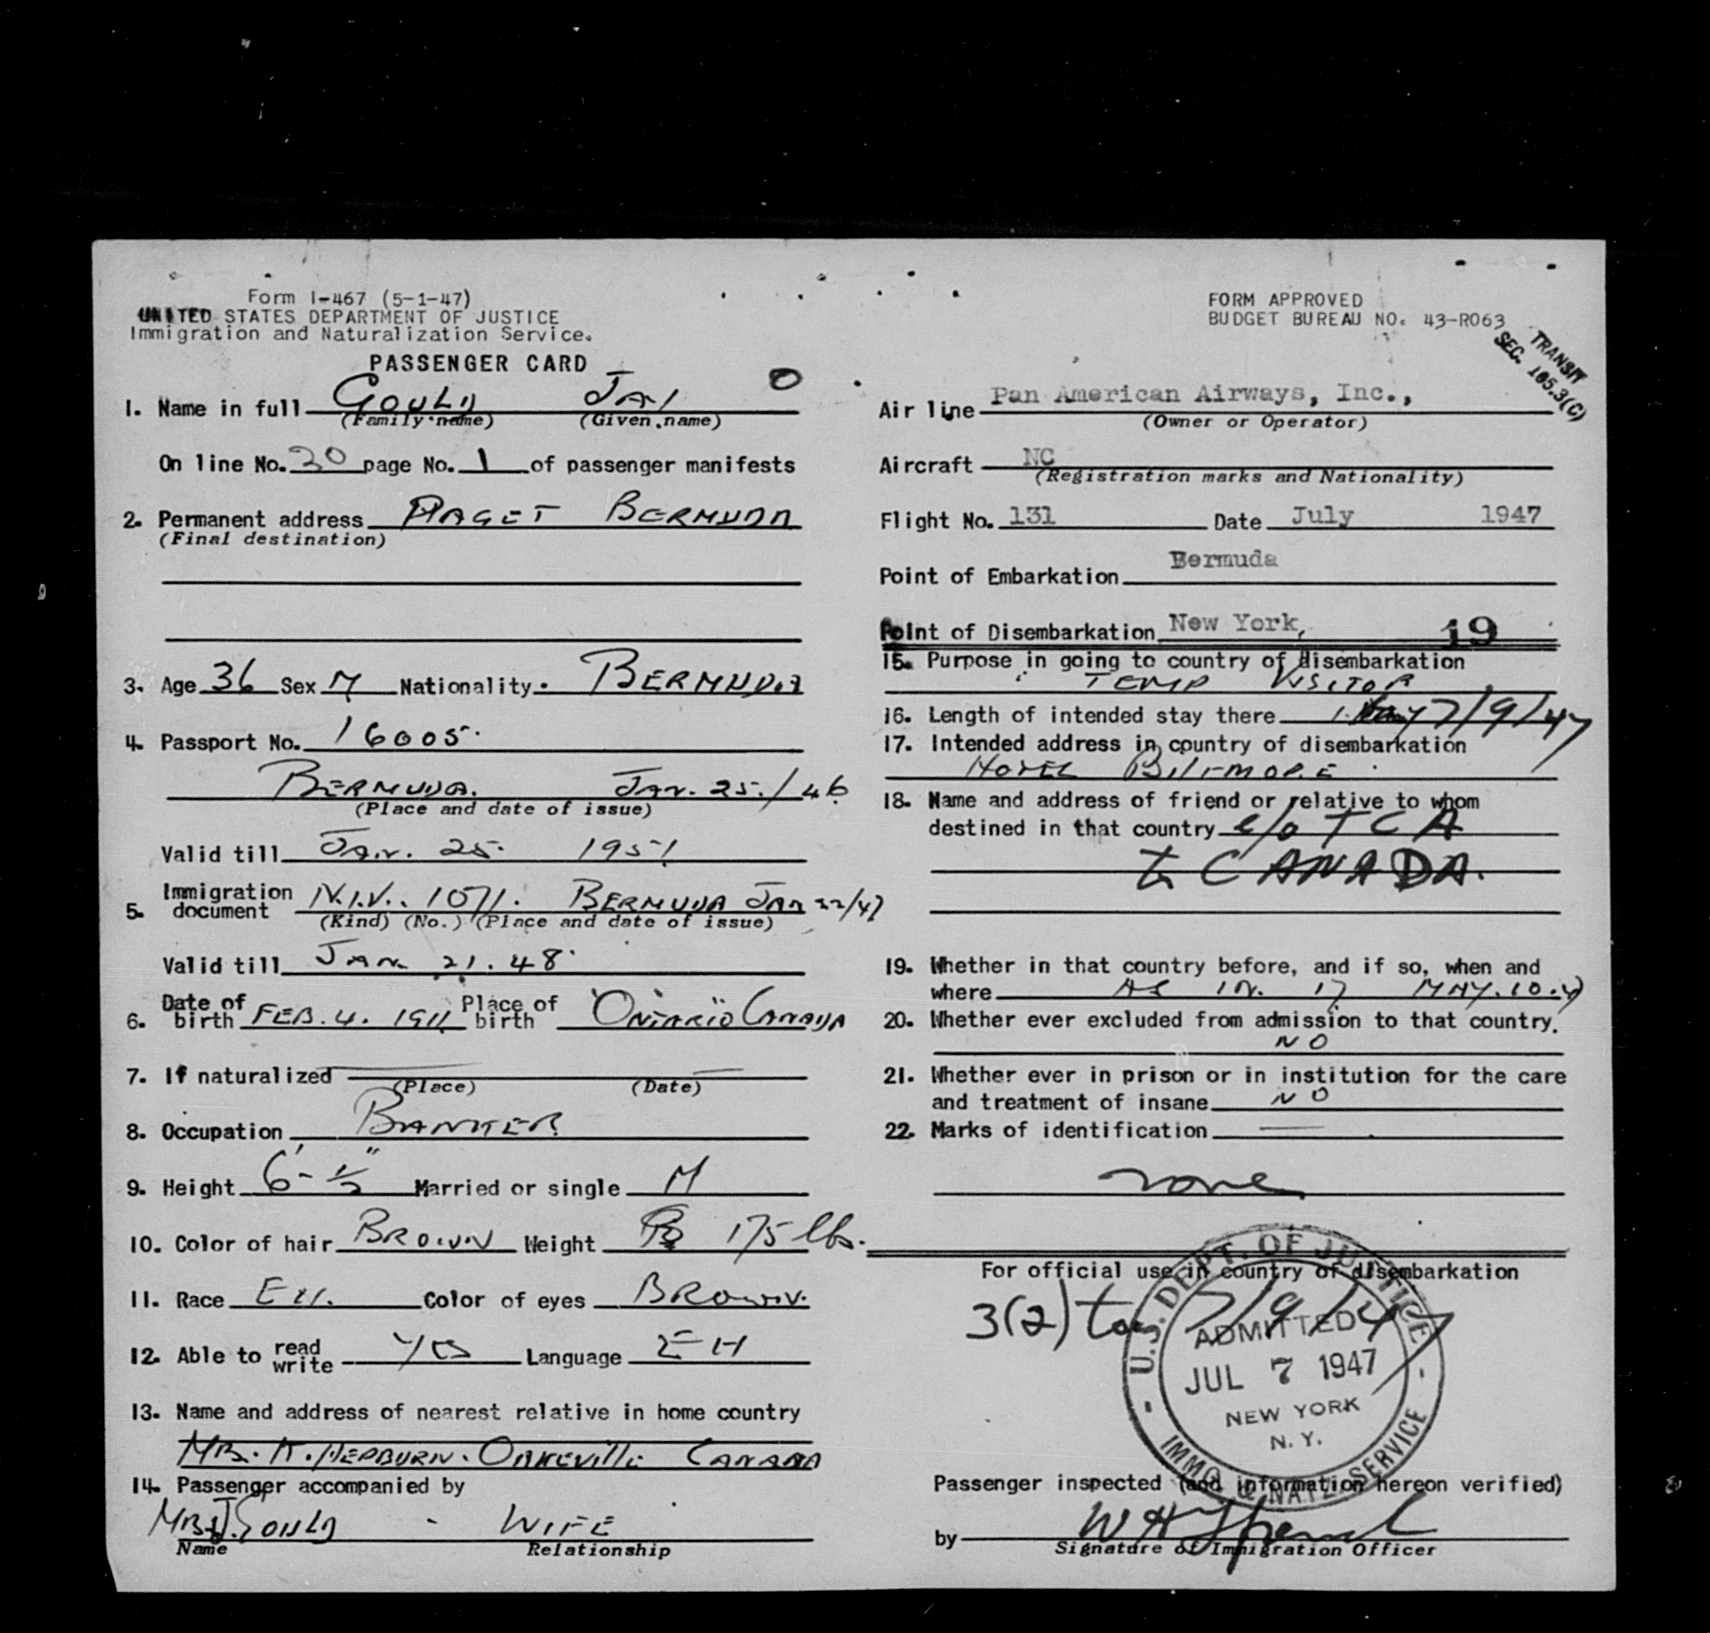 Form I-467 (5-1-47)
UNITED STATES DEPARTMENT OF JUSTICE
Immigration and Naturalization Service.
PASSENGER CARD
1. Name in full GOULD JAY
(Family name) (Given name)
On line No. 30 page No. 1 of passenger manifests
2. Permanent address PAGET BERMUDA
(Final destination)
3. Age 36 Sex M Nationality. BERMUDA
4. Passport No. 16005.
BERMUDA. JAN. 25./46
(Place and date of issue)
Valid till JAN. 25. 1951
5. Immigration document N.I.V.. 1071. BERMUDA JAN 22/47
(Kind) (No.) (Place and date of issue)
Valid till JAN. 21. 48
6. Date of birth FEB. 4. 1911 Place of birth ONTARIO CANADA
7. If naturalized
(Place) (Date)
8. Occupation BANKER
9. Height 6'-½" Married or single M
10. Color of hair BROWN Weight 175 lbs.
11. Race Color of eyes BROWN.
12. Able to read write YES Language
13. Name and address of nearest relative in home country
MRS. K. HEPBURN. OAKEVILLE CANADA
14. Passenger accompanied by
MRS J. GOULD - WIFE
Name Relationship
FORM APPROVED
BUDGET BUREAU NO. 43-R063
TRANSIT
SEC. 105.3(C)
Air line Pan American Airways, Inc.,
(Owner or Operator)
Aircraft NC
(Registration marks and Nationality)
Flight No. 131 Date July 1947
Point of Embarkation Bermuda
Point of Disembarkation New York, 19
15. Purpose in going to country of disembarkation
TEMP VISITOR
16. Length of intended stay there 7/9/47
17. Intended address in country of disembarkation
HOTEL BILTMORE
18. Name and address of friend or relative to whom
destined in that country c/o TCA
to CANADA.
19. Whether in that country before, and if so, when and
where AS IN. 17 MAY. 10. 47
20. Whether ever excluded from admission to that country.
NO
21. Whether ever in prison or in institution for the care
and treatment of insane NO
22. Marks of identification
none
For official use in country of disembarkation
3(2) to 7/9/47
U.S. DEPT. OF JUSTICE
ADMITTED
JUL 7 1947
NEW YORK
N. Y.
IMMG. & NATZ. SERVICE
Passenger inspected (and information hereon verified)
by W H
Signature of Immigration Officer